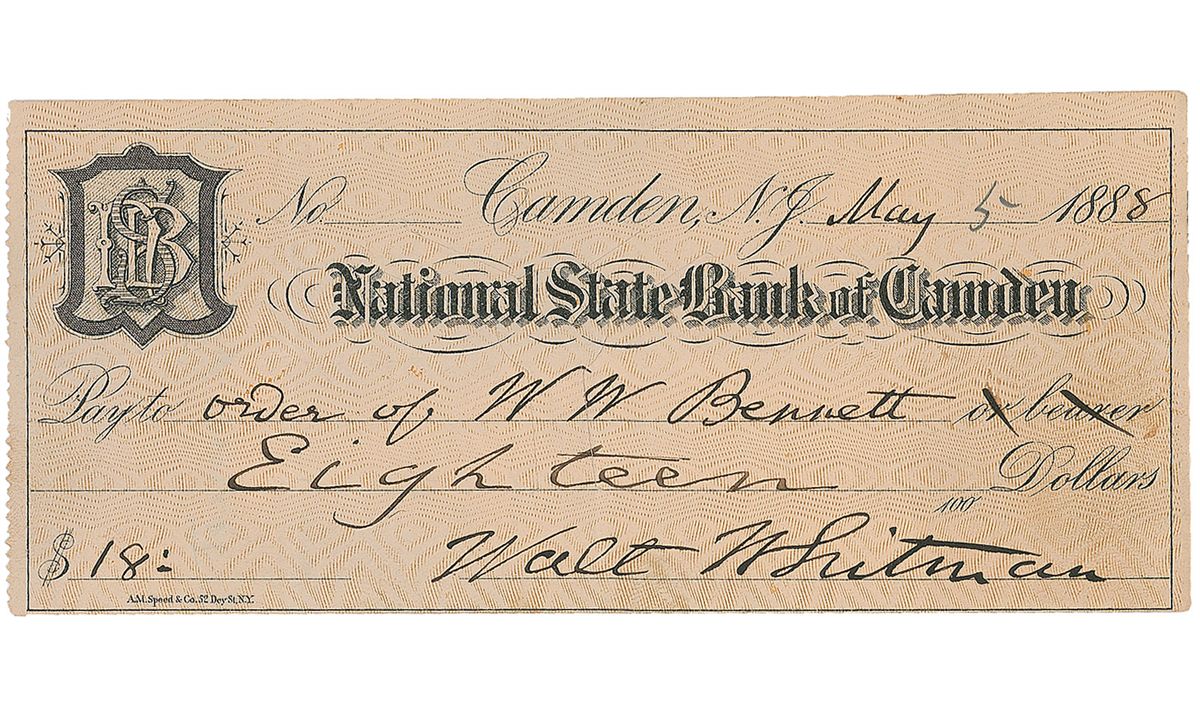 NSB
No. Camden, N.J. May 5 1888
National State Bank of Camden
Pay to order of W W Bennett or bearer
Eighteen Dollars
100
$ 18: Walt Whitman
A.M. Speed & Co. 52 Dey St, N.Y.